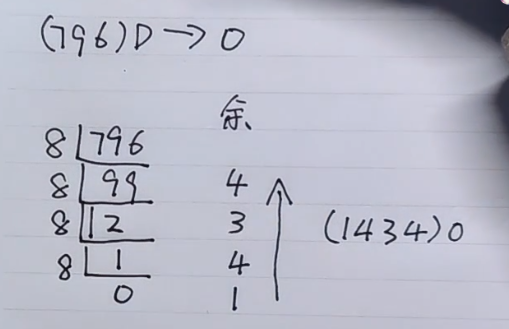 (796)D → O
余
8 796
8 99 4
8 12 3
8 1 4
0 1
(1434)O